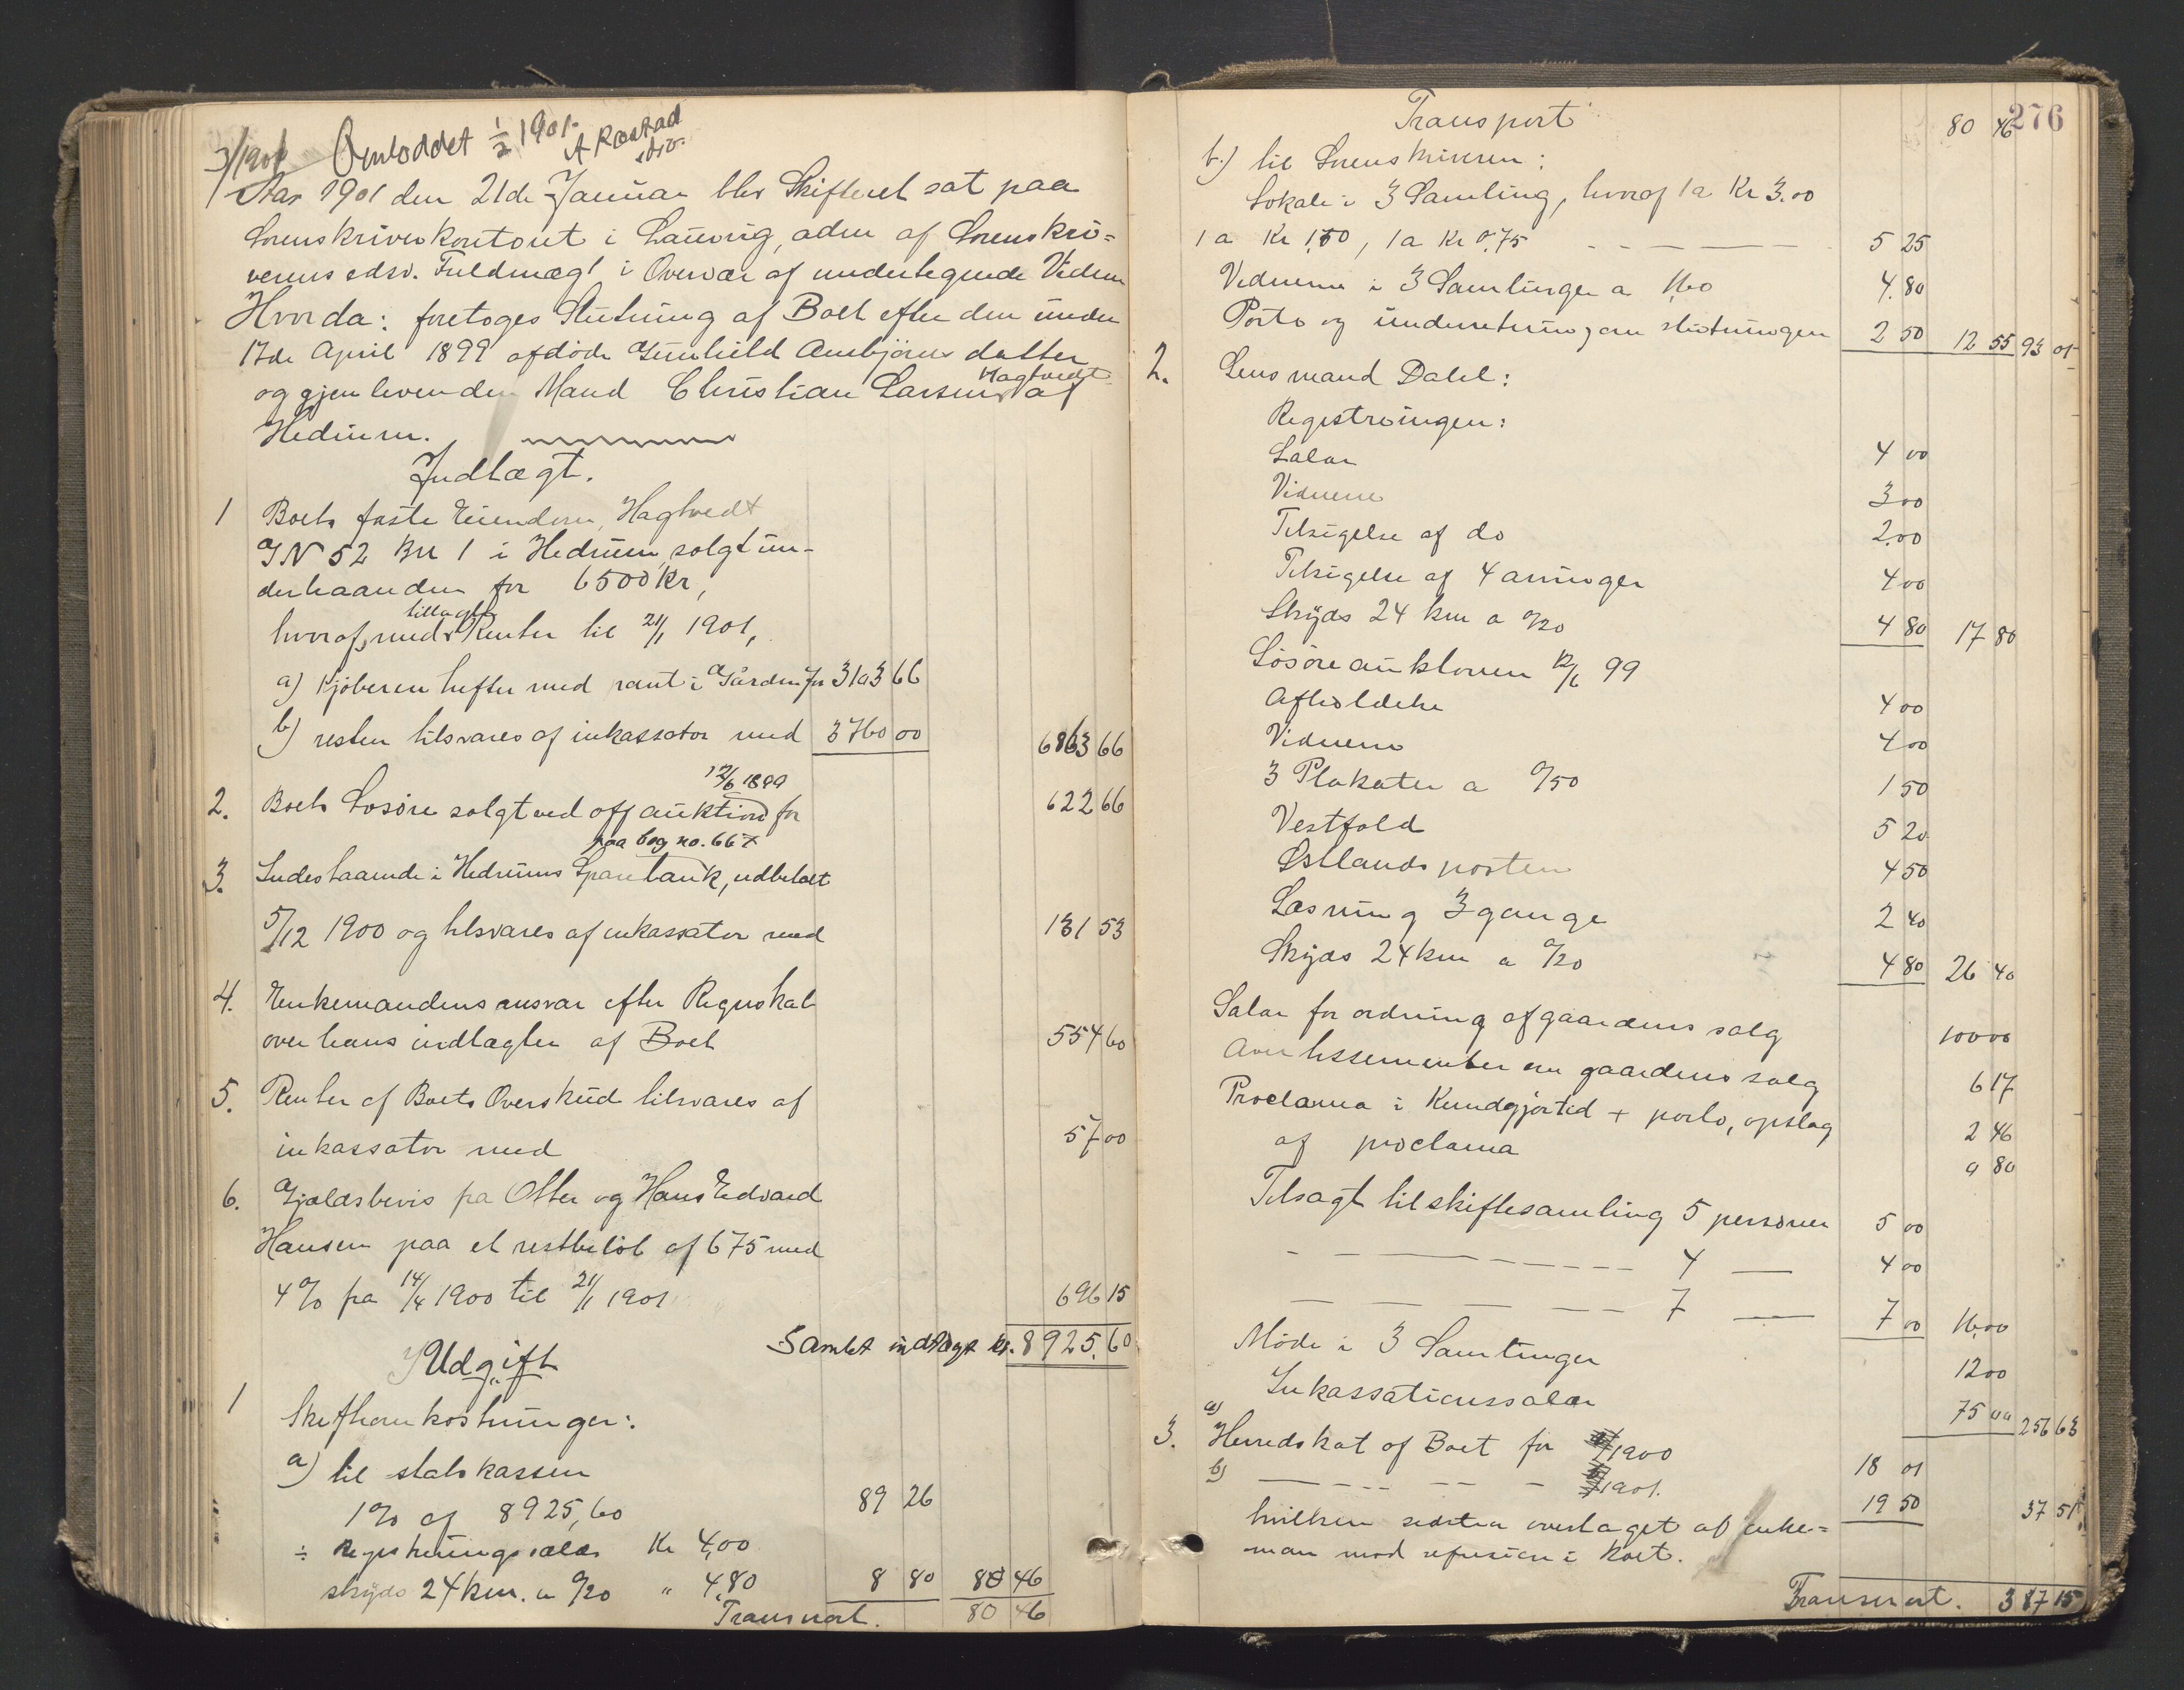 Omloddet 1/2 1901.
A Røstad
edsv.
Aar 1901 den 21de Januar blev Skifteret sat paa
Sorenskriverkontoret i Laurvig, adm af Sorenskri=
verens edsv. Fuldmægt i Overvær af undertegnede Vidner
Hvorda: foretoges Slutning af Boet efter den under
17de April 1899 afdøde Gunhild Ambjørnsdatter
og gjenlevende Mand Christian Larsen Hagtvedt af
Hedrum.
Indtægt.
1 Boets faste Eiendom, Hagtvedt
GN 52 Bn 1 i Hedrum, solgt un-
derhaanden for 6500 Kr,
hvoraf, med tillagte Renter til 21/1 1901,
a) Kjøberen hefter med pant i Gården for 3103 66
b) resten tilsvares af inkassator med 3760 00 6863 66
2. Boets Løsøre solgt ved off auktion 12/6 1899 for 622 66
3. Indestaaende i Hedrums Sparebank, paa bog no. 667 udbetalt
5/12 1900 og tilsvares af inkassator med 131 53
4. Enkemandens ansvar efter Regnskab
over hans indtægter af Boet 554 60
5. Renter af Boets Overskud tilsvares af
inkassator med 57 00
6. Gjældsbevis fra Otter og Hans Edvard
Hansen paa et restbeløb af 675 med
4% fra 14/4 1900 til 21/1 1901 696 15
Samlet indtægt kr. 8925.60
Udgift
1 Skifteomkostninger:
a) til statskassen
1% af 8925,60 89 26
÷ Registreringssalær Kr 4,00
skyds 24 km. a 0/20 " 4,80 8 80 80 46
Transport. 80 46
276
Transport 80 46
b.) til Sorenskriveren:
Lokale i 3 Samling, hvoraf 1 a Kr 3.00
1 a Kr 1,50, 1 a Kr 0,75 5 25
Vidnerne i 3 Samlinger a 1,60 4.80
Porto og underretning om slutningen 2 50 12 55 93 01
2. Lensmand Dahl:
Registreringen:
Salær 4 00
Vidnerne 3 00
Tilsigelse af do 2.00
Tilsigelse af 4 arvinger 4 00
Skyds 24 km a 0/20 4 80 17 80
Løsøreauktionen 12/6 99
Afholdelse 4 00
Vidnerne 4 00
3 Plakater a 0/50 1 50
Vestfold 5 20
Østlandsposten 4 50
Læsning 3 gange 2 40
Skyds 24 km a 0/20 4 80 26 40
Salær for ordning af gaardens salg 100 00
Avertissementer om gaardens salg 6 17
Proclama i Kundgjørtid + porto, opslag 2 46
af proclama 0 80
Tilsagt til skiftesamling 5 personer 5 00
- - - - - - - 4 — 4 00
- - - - - 7 — 7 00 16,00
Møde i 3 Samlinger 12 00
Inkassationssalær 75 00 256 63
3. a) Herredskat af Boet for 1900 18 01
b) - - - - 1901. 19 50 37 51
hvilken sidste overtaget af enke=
man mod refusion i Boet.
Transport. 387 15